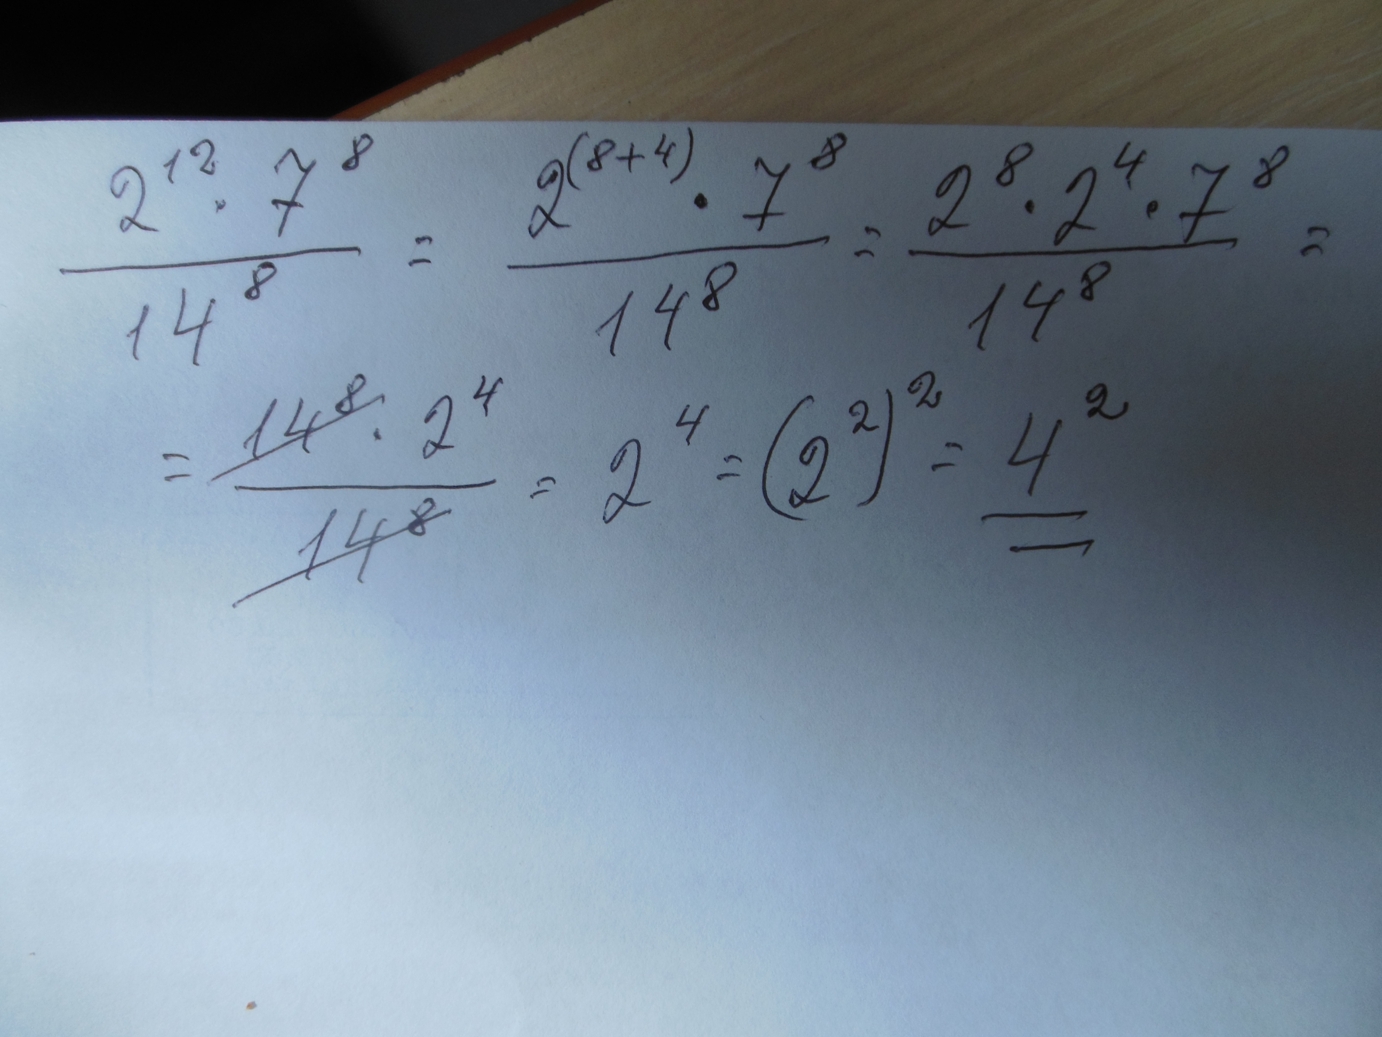 2^12 · 7^8 / 14^8 = 2^(8+4) · 7^8 / 14^8 = 2^8 · 2^4 · 7^8 / 14^8 =
= 14^8 · 2^4 / 14^8 = 2^4 = (2^2)^2 = 4^2